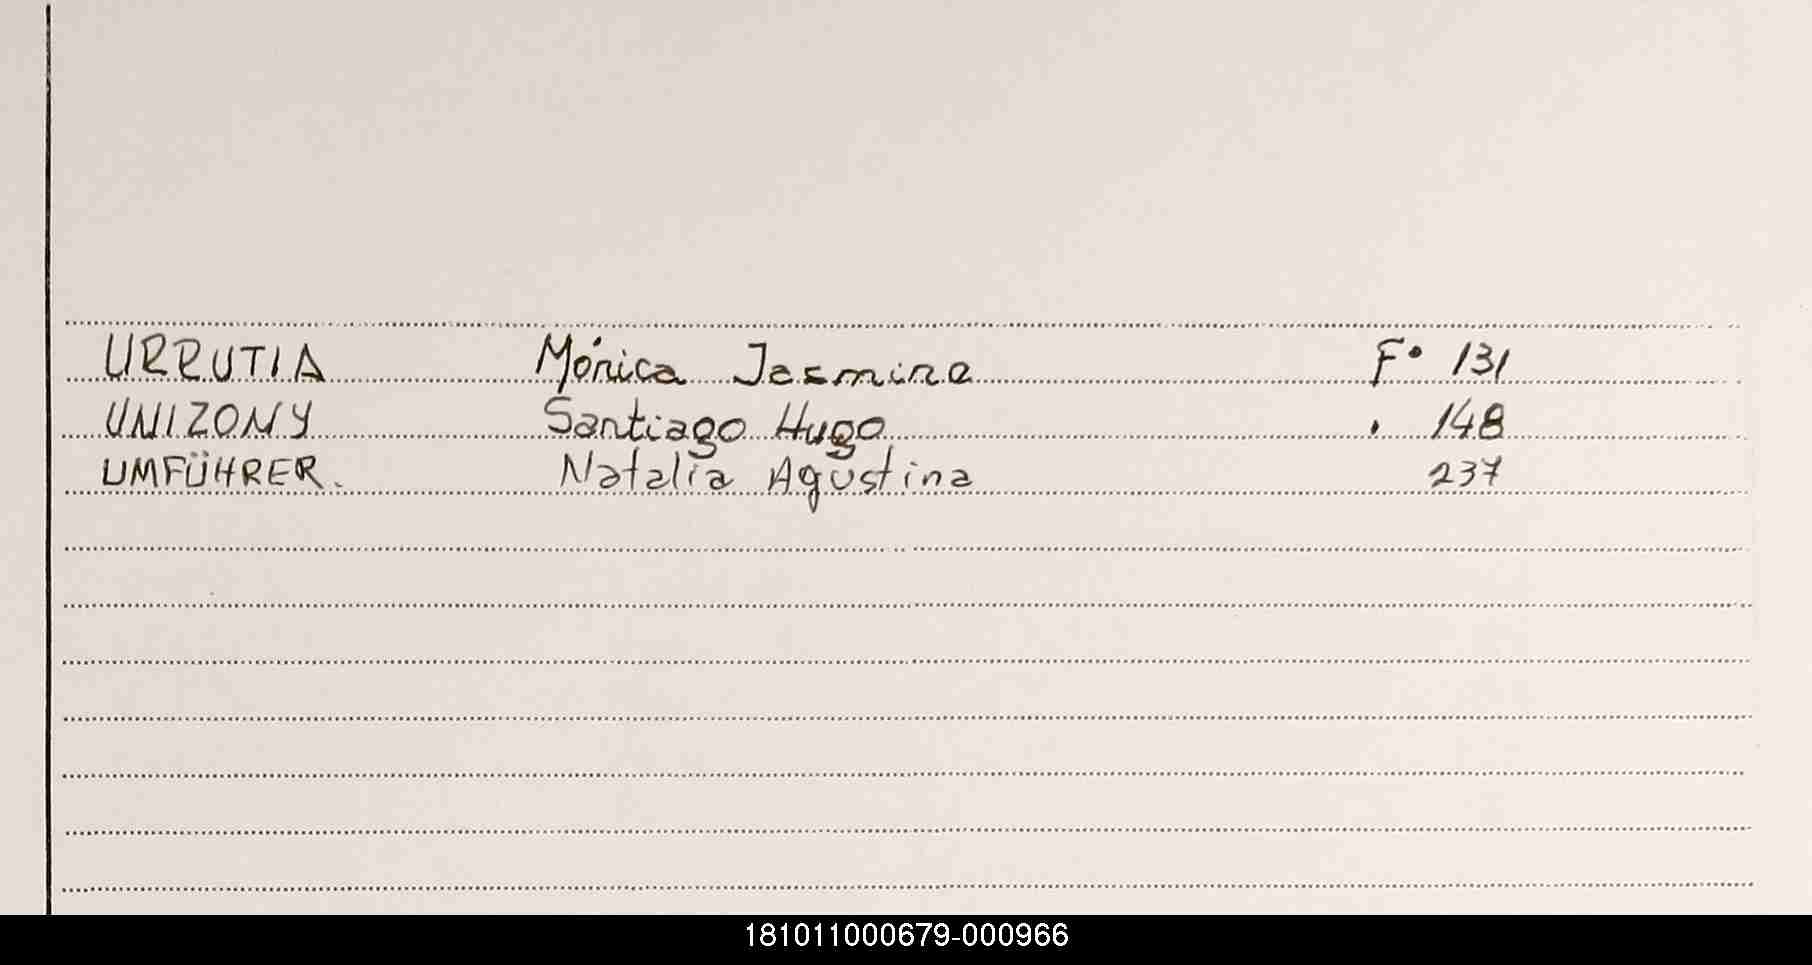 URRUTIA Mónica Jasmine F° 131
UNIZONY Santiago Hugo . 148
UMFÜHRER. Natalia Agustina 237
181011000679-000966